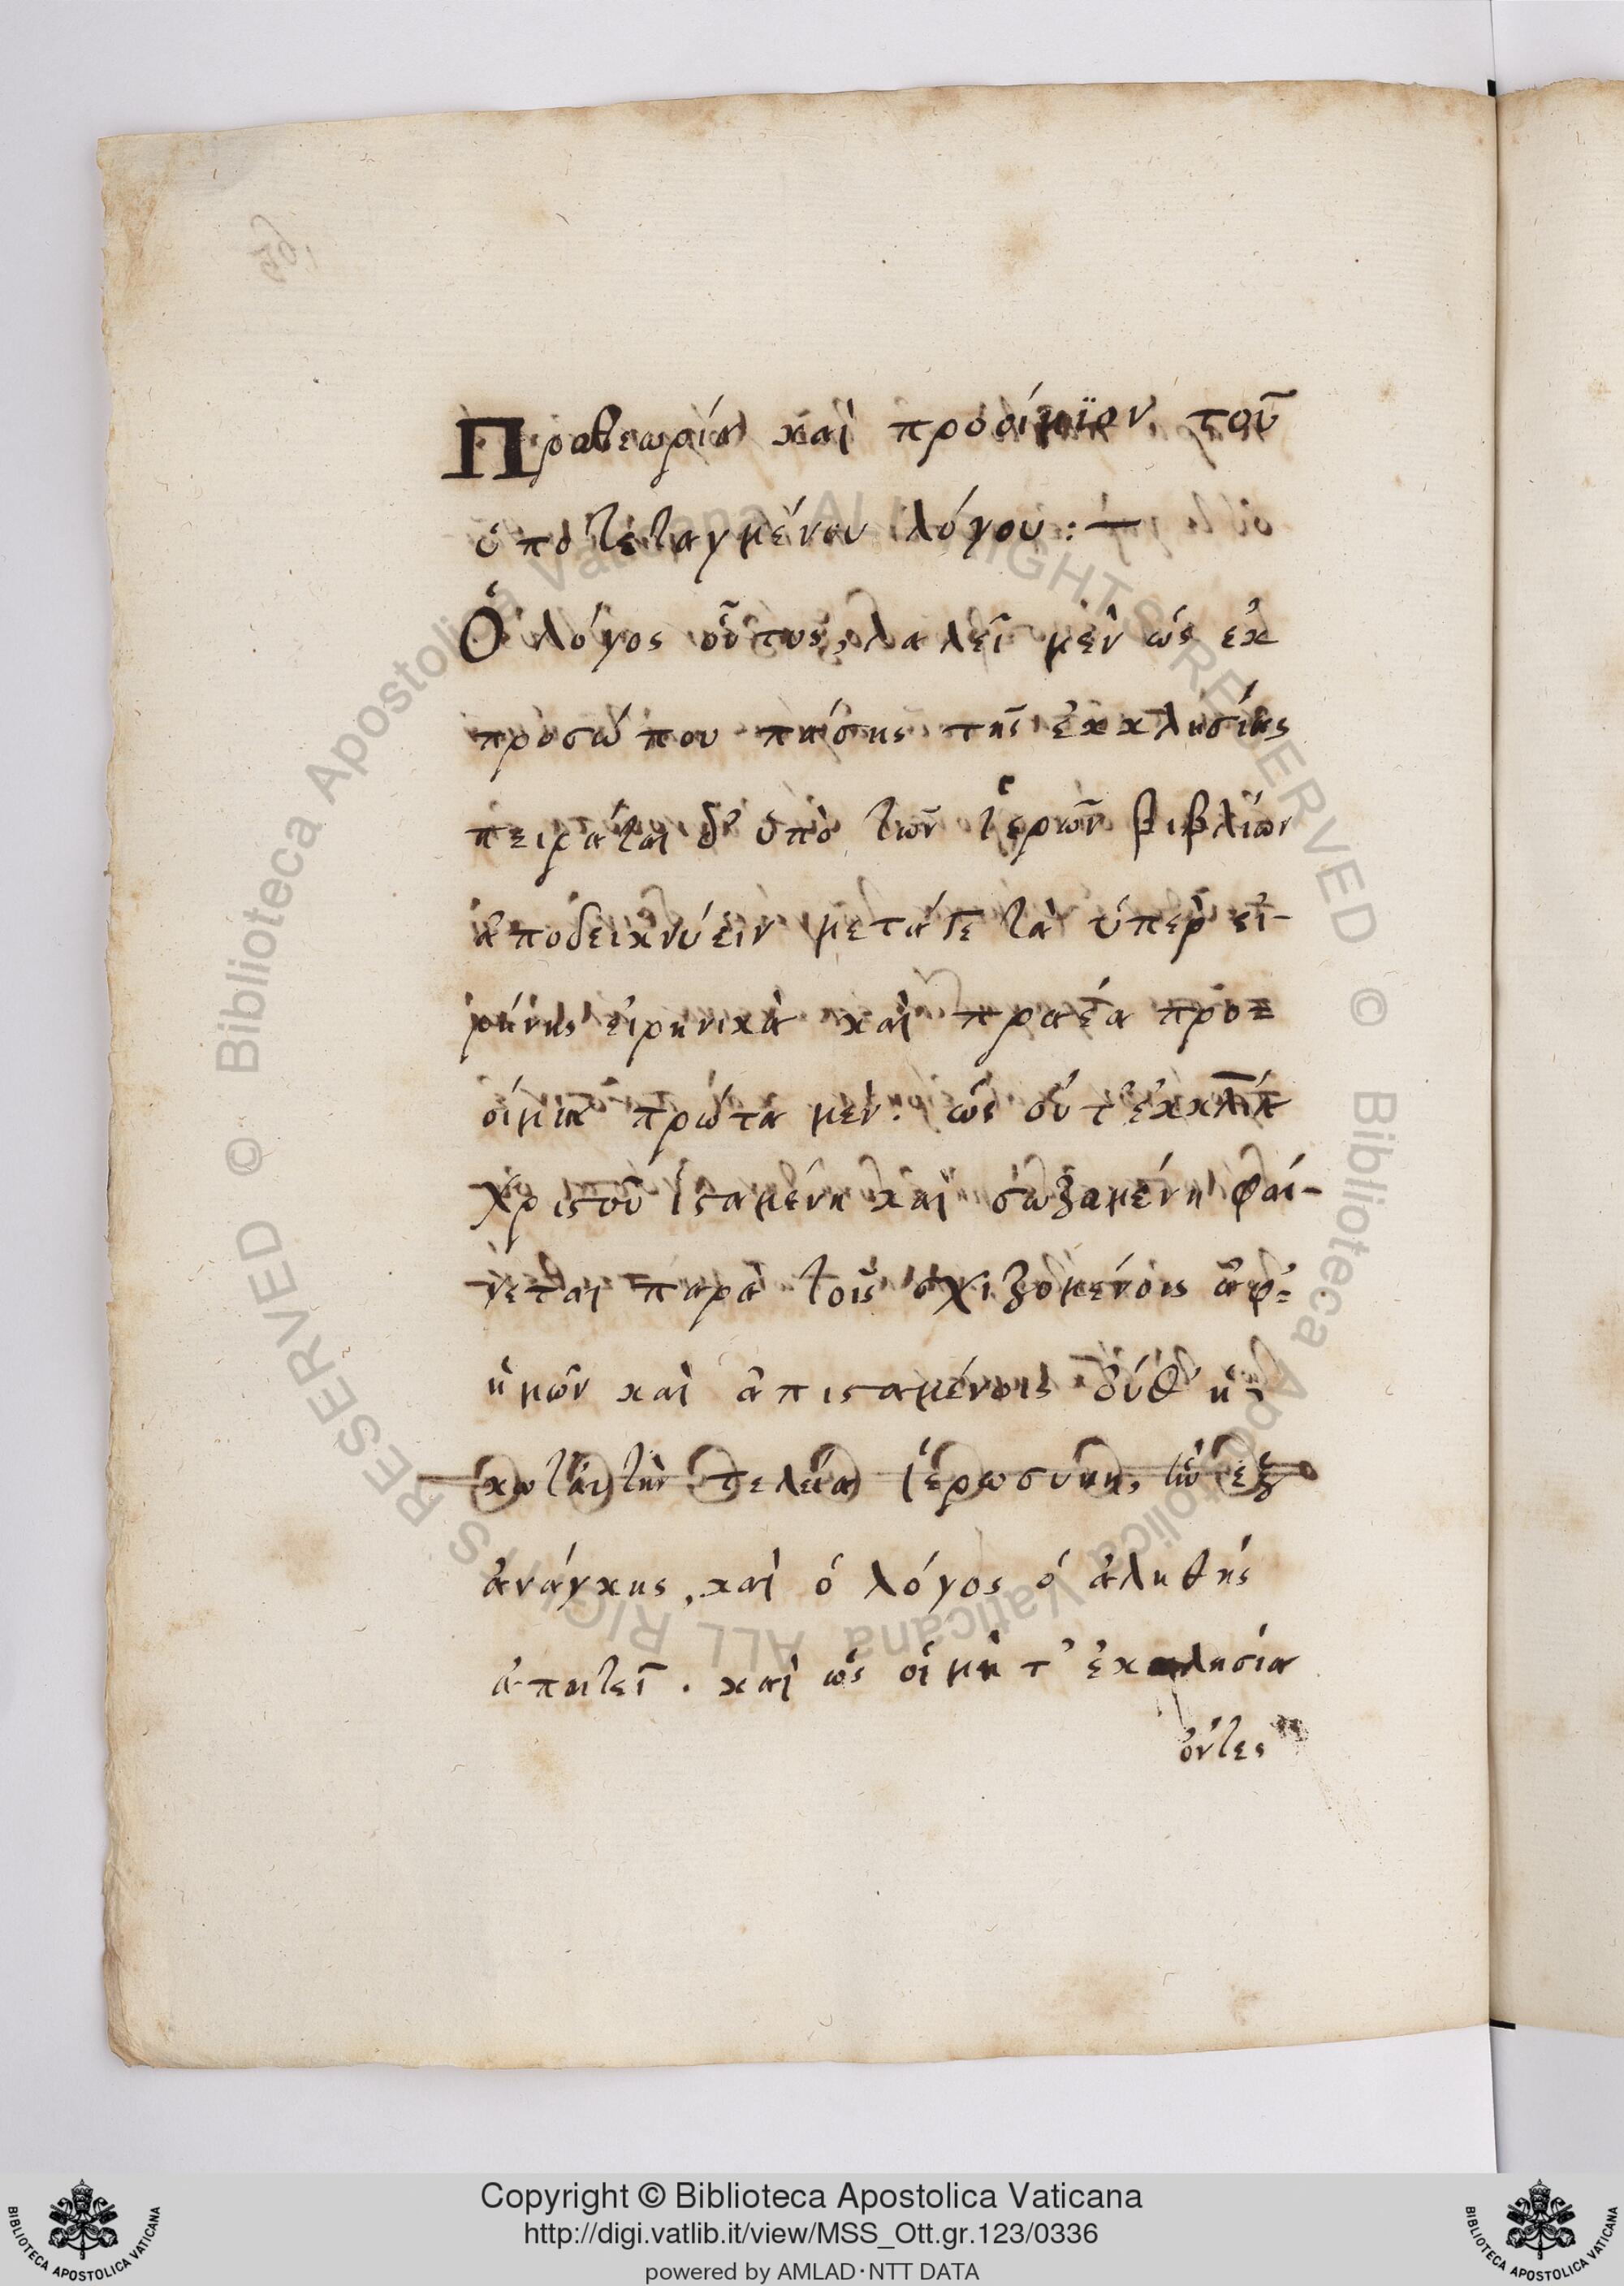 Προθεωρία καὶ προοίμϊον τοῦ
ὑποτεταγμένου λόγου :—
Ὁ λόγος οὗτος, λαλεῖ μὲν ὡς ἐκ
προσώπου πάσης τῆς ἐκκλησίας
πειρᾶται δ' ὑπὸ τῶν ἱερῶν βιβλίων
ἀποδεικνύειν μετάγε τὰ ὑπὲρ εἰ-
ρήνης εἰρηνικὰ καὶ πραέα προ=
οίμια πρῶτα μέν. ὡς οὐ τ' ἐκκλ
Χριστοῦ ἱσταμένη καὶ σωζαμένη φαί-
νεται παρὰ τοῖς σχιζομένοις ἀφ'=
ἡμῶν καὶ ἀπισταμένοις οὐθ' ἡ
τελεία ἱερωσύνη, ἐξ
ἀνάγκης, καὶ ὁ λόγος ὁ ἀληθής
ἀπῃτεῖ. καὶ ὡς οἱ μὴ τ' ἐκκλησία
ὄντες
Biblioteca Apostolica Vaticana ALL RIGHTS RESERVED © Biblioteca Apostolica Vaticana ALL RIGHTS RESERVED ©
Copyright © Biblioteca Apostolica Vaticana
http://digi.vatlib.it/view/MSS_Ott.gr.123/0336
powered by AMLAD·NTT DATA
BIBLIOTECA APOSTOLICA VATICANA
BIBLIOTECA APOSTOLICA VATICANA